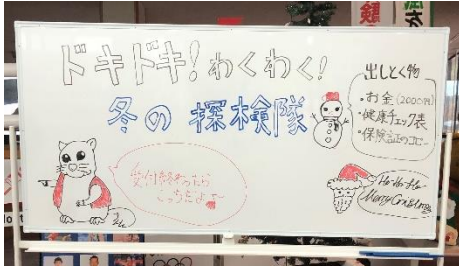 ドキドキ!わくわく!
冬の探検隊
出しとく物
・お金(2000円)
・健康チェック表
・保険証のコピー
受付終わったら
こっちだよー
Ho Ho Ho
Merry Christmas